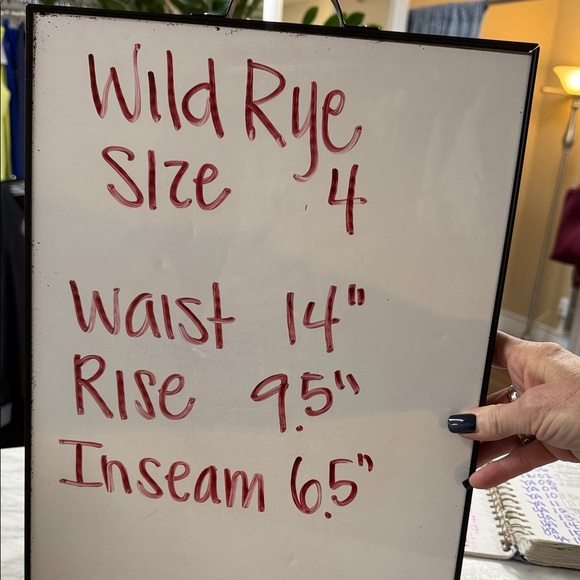 Wild Rye
Size 4
Waist 14"
Rise 9.5"
Inseam 6.5"